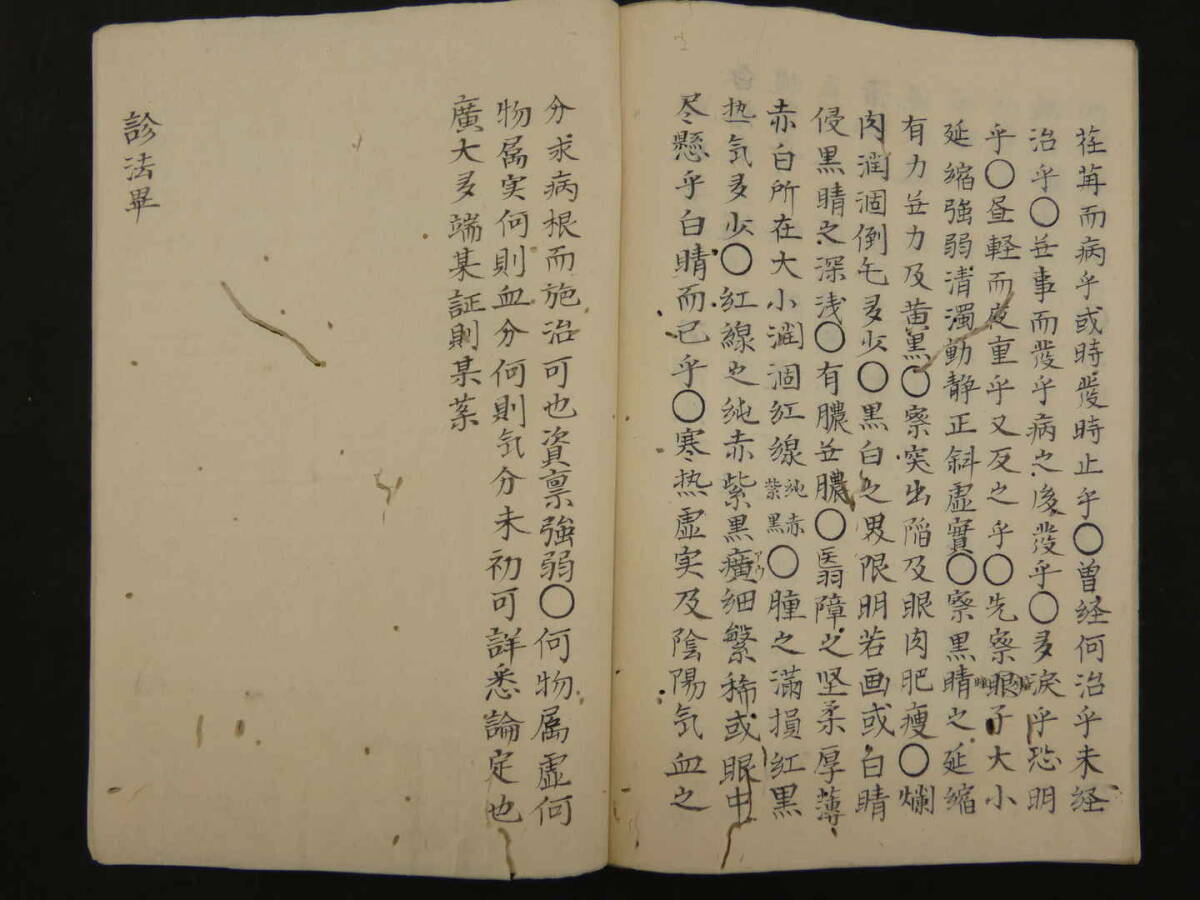 荏苒而病乎或時發時止乎〇曽経何治乎未経
治乎〇無事而發乎病之後發乎〇多涙乎恐明
乎〇昼軽而夜重乎又反之乎〇先察眼子大小
延縮強弱清濁動静正斜虚實〇察黒睛之延縮
有力無力及黄黒〇察突出陥及眼肉肥痩〇爛
肉潤涸倒乇多少〇黒白之界限明若画或白睛
侵黒睛之深浅〇有膿無膿〇翳障之堅柔厚薄
赤白所在大小潤涸紅線純赤紫黒〇腫之満損紅黒
熱気多少〇紅線之純赤紫黒癀細繁稀或眼中
尽懸乎白睛而已乎〇寒热虚実及陰陽気血之
分求病根而施治可也資禀強弱〇何物属虚何
物属実何則血分何則気分未初可詳悉論定也
廣大多端某証則某茶
診法畢